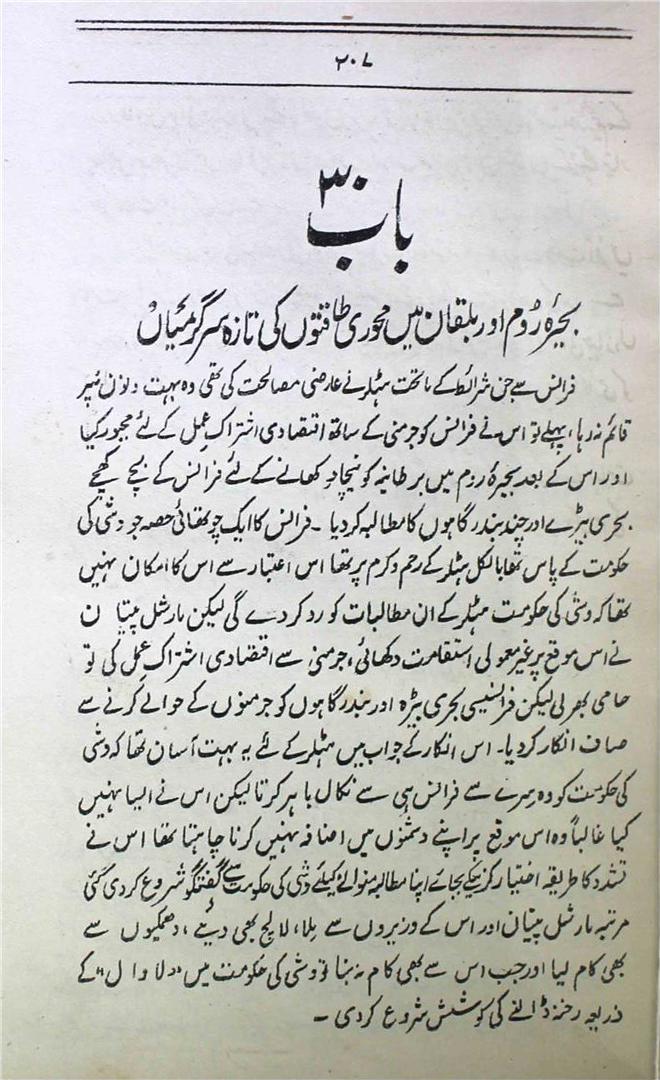 ۲۰۷
باب ۳۰
بحیرۂ رُوم اور بلقان میں محوری طاقتوں کی تازہ سرگرمیاں
فرانس سے جن شرائط کے ماتحت ہٹلر نے عارضی مصالحت کی تھی وہ بہت دنوں نہیں
قائم نہ رہا، پہلے تو اس نے فرانس کو جرمنی کے ساتھ اقتصادی اشتراکِ عمل کے لئے مجبور کیا
اور اس کے بعد بحیرۂ روم میں برطانیہ کو نیچا دکھانے کے لئے فرانس کے بچے کھچے
بحری بیڑے اور چند بندرگاہوں کا مطالبہ کردیا ۔ فرانس کا ایک چوتھائی حصہ جو وشی کی
حکومت کے پاس تھا بالکل ہٹلر کے رحم و کرم پر تھا اس اعتبار سے اس کا امکان نہیں
تھا کہ وشی کی حکومت ہٹلر کے ان مطالبات کو رد کر دے گی لیکن مارشل پیتا ن
نے اس موقع پر غیر معمولی استقامت دکھائی، جرمنی سے اقتصادی اشتراکِ عمل کی تو
حامی بھرلی لیکن فرانسیسی بحری بیڑہ اور بندرگاہوں کو جرمنوں کے حوالے کرنے سے
صاف انکار کردیا۔ اس انکار کے جواب میں ہٹلر کے لئے یہ بہت آسان تھا کہ وشی
کی حکومت کو وہ سرے سے فرانس ہی سے نکال باہر کرتا لیکن اس نے ایسا نہیں
کیا غالباً وہ اس موقع پر اپنے دشمنوں میں اضافہ نہیں کرنا چاہتا تھا اس نے
تشدد کا طریقہ اختیار کرنیکے بجائے اپنا مطالبہ منوانے کیلئے وشی کی حکومت سے گفتگو شروع کردی کئی
مرتبہ مارشل پیتان اور اس کے وزیروں سے ملا، لالچ بھی دیئے، دھمکیوں سے
بھی کام لیا اور جب اس سے بھی کام نہ بنا تو وشی کی حکومت میں "لا وا ل" کے
ذریعہ رخنہ ڈالنے کی کوشش شروع کردی ۔